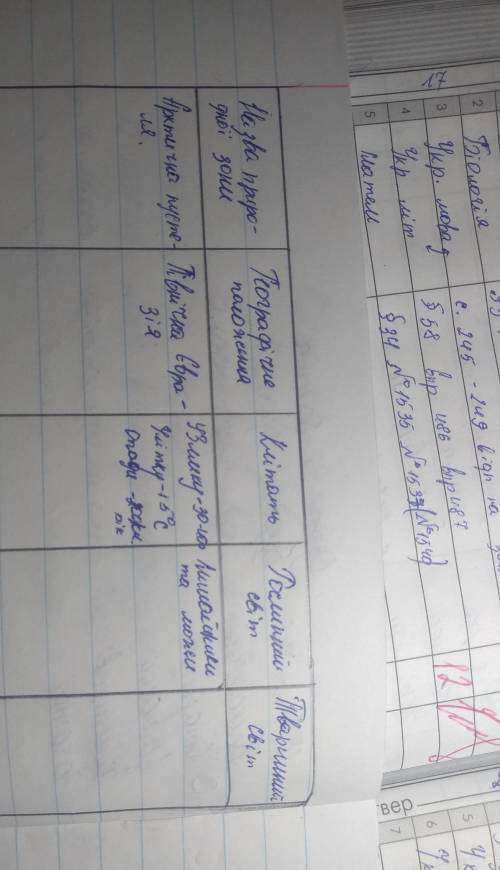 Назва приро-
дної зони
Географічне
положення
Клімат
Рослинний
світ
Тваринний
світ
Арктична пусте-
ля.
Північна Євра-
зія
Узимку-30
Улітку-15°С
Опади-
Лишайники
та мохи
17
2 Біологія
3 Укр. мова
4 Укр літ
5 матем
с. 245 -
§ 58 впр 486 впр 487
§ 34 № 1535 № 1537(№1540)
12
вер
5
6
7